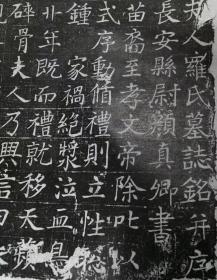 夫人羅氏墓誌銘并序
長安縣尉顏真卿書
苗裔至孝文帝除叱以
式序動脩禮則立性
鍾家禍絕漿泣血
廿年既而禮就移天
碎骨夫人乃興言